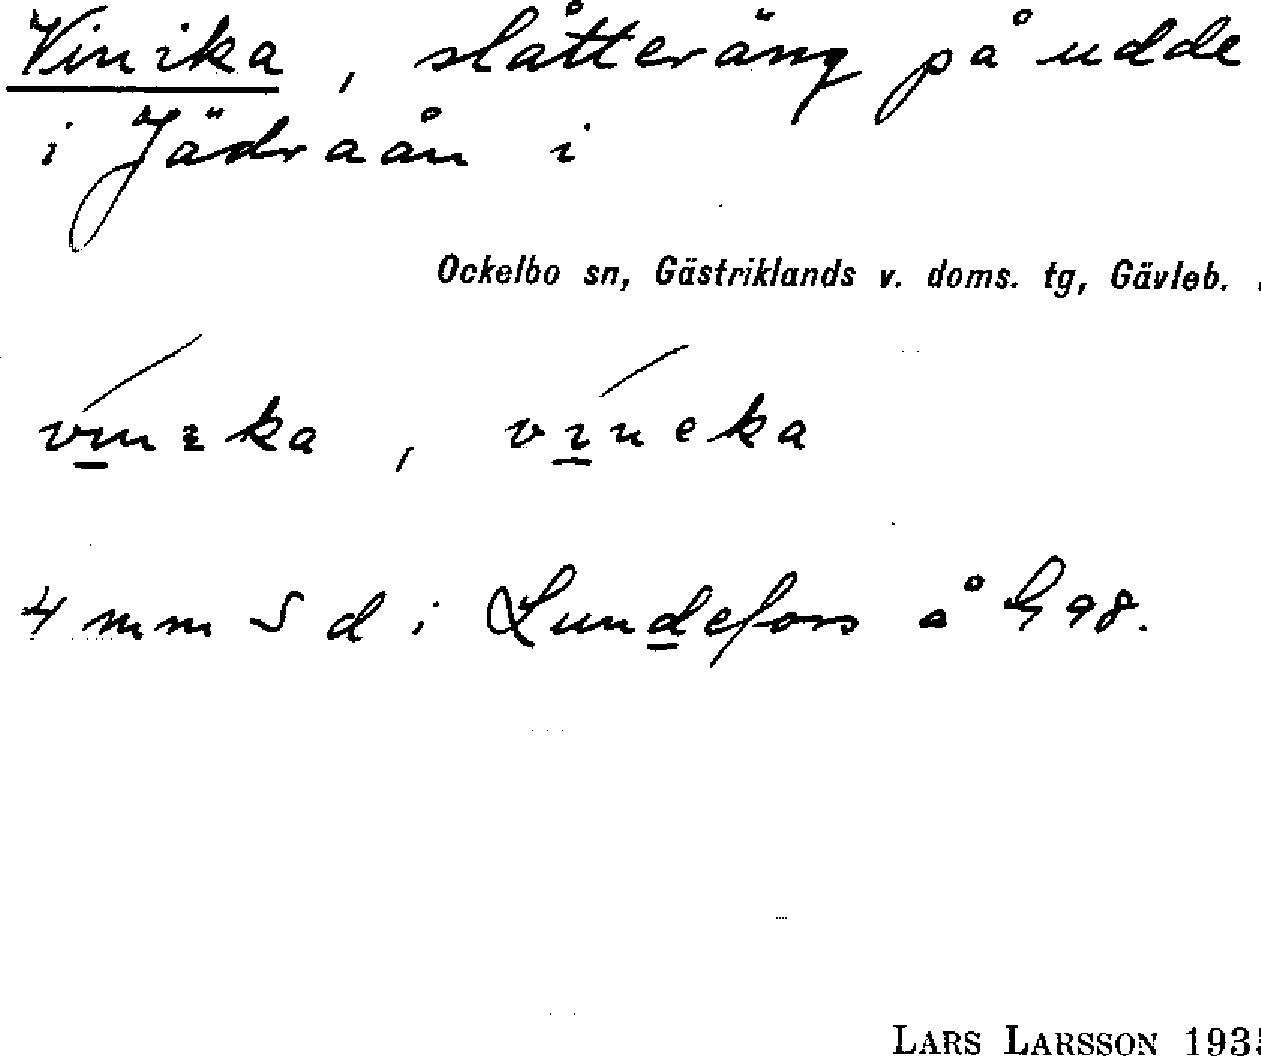 Vinika, slåtteräng på udde
i Jädraån i
Ockelbo sn, Gästriklands v. doms. tg, Gävleb.
vinɪka, vineka
4 mm S d i Lundefors å G 98.
LARS LARSSON 193